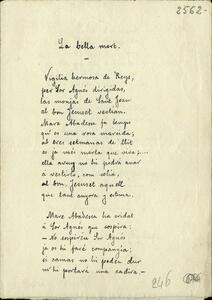 2562-
La bella mort.
Vigilia hermosa de Reys,
per Sor Agnés dirigidas,
las monjas de Sant Joan
al bon Jesuset vestian.
Mare Abadessa ja temps
qu'es una rosa marcida;
al tres setmanas de llit
es ja més morta que viva;...
ella avuy no hi podrá anar
á vestirlo, com solia,
al bon Jesuset aquell
que tant anyora y estima.
Mare Abadessa ha cridat
á Sor Agnés que sospira:
- No sospireu Sor Agnés
jo os hi faré companyia;
si camas no hi poden dur
m'hi portará una cadira.-
246